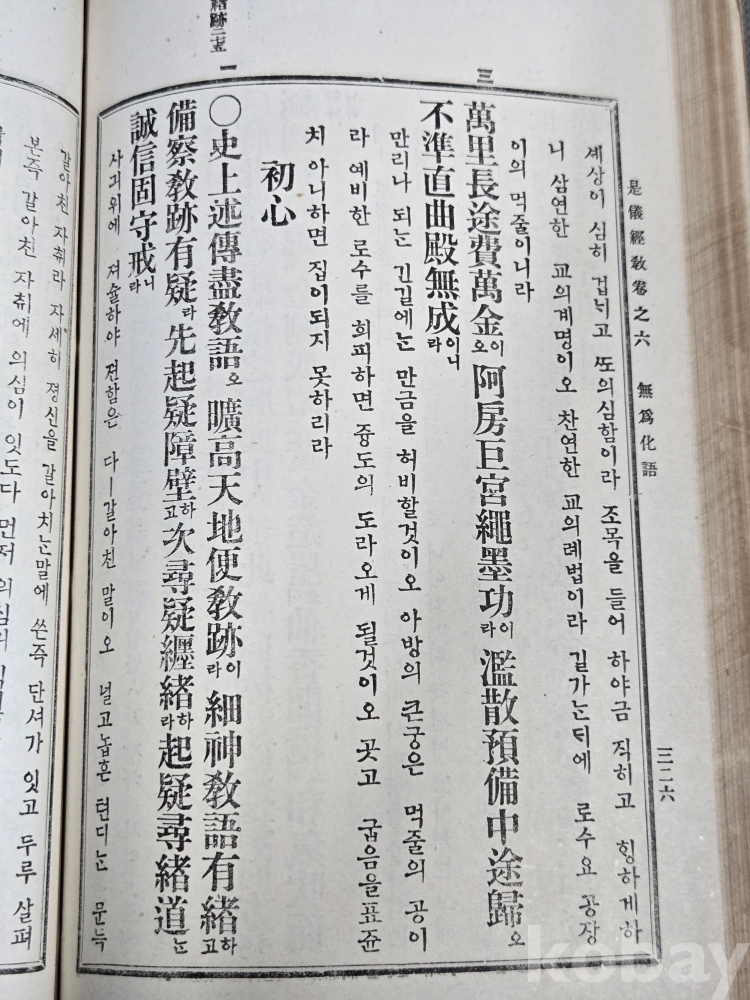 是儀經敎卷之六 無爲化語 三二六
세상이 심히 겁늬고 또의심함이라 조목을 들어 하야금 직히고 힝하게하
니 삼연한 교의계명이오 찬연한 교의례법이라 길가는듸에 로수요 공장
이의 먹줄이니라
三
萬里長途費萬金이오 阿房巨宮繩墨功이라 濫散預備中途歸오
不準直曲殿無成이니라
만리나 되는 긴길에는 만금을 허비할것이오 아방의 큰궁은 먹줄의 공이
라 예비한 로수를 희피하면 즁도의 도라오게 될것이오 곳고 굽음을표쥰
치 아니하면 집이되지 못하리라
初心
一
○史上述傳盡敎語오 曠高天地便敎跡이라 細神敎語有緖하고
備察敎跡有疑라 先起疑障壁하고 次尋疑纒緖하라 起疑尋緖道는
誠信固守戒니라
사긔위에 져술하야 젼함은 다ㅣ갈아친 말이오 널고놉흔 텬디는 문득
갈아친 자취라 자세히 졍신을 갈아치는말에 쓴즉 단셔가 잇고 두루 살펴
본즉 갈아친 자취에 의심이 잇도다 먼저 의심의
kobay